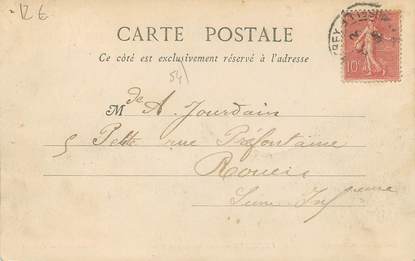 RE
CARTE POSTALE
Ce côté est exclusivement réservé à l'adresse
54
Mde A. Jourdain
5 Petite rue Préfontaine
Rouen
Seine Inférieure
10c